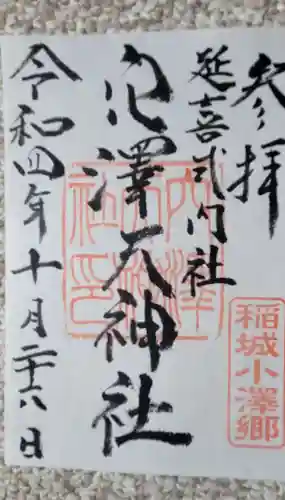 参拝
延喜式内社
穴澤天神社
令和四年十月二十八日
稲城小澤郷